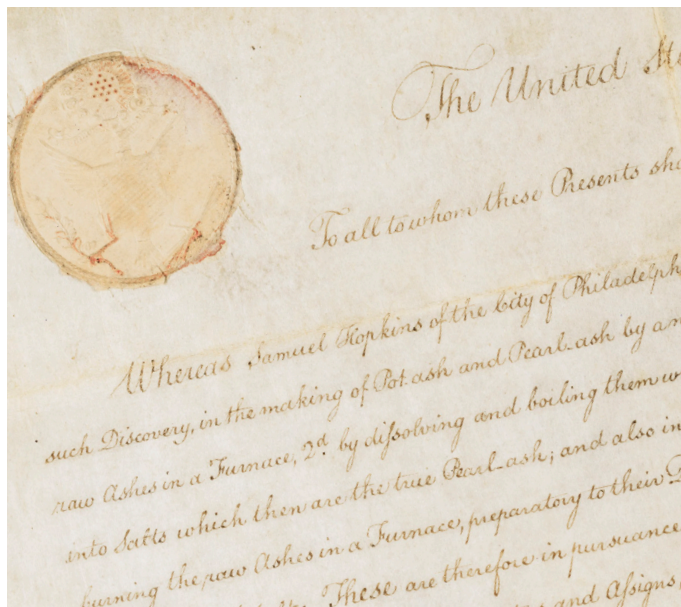 The United
To all to whom these Presents
Whereas Samuel Hopkins of the City of Philadelph
such Discovery, in the making of Pot ash and Pearl ash by
raw Ashes in a Furnace, 2d. by dissolving and boiling them
into Salts which then are the true Pearl ash; and also in
burning the raw Ashes in a Furnace, preparatory to their
These are therefore in pursuance
and Assigns,